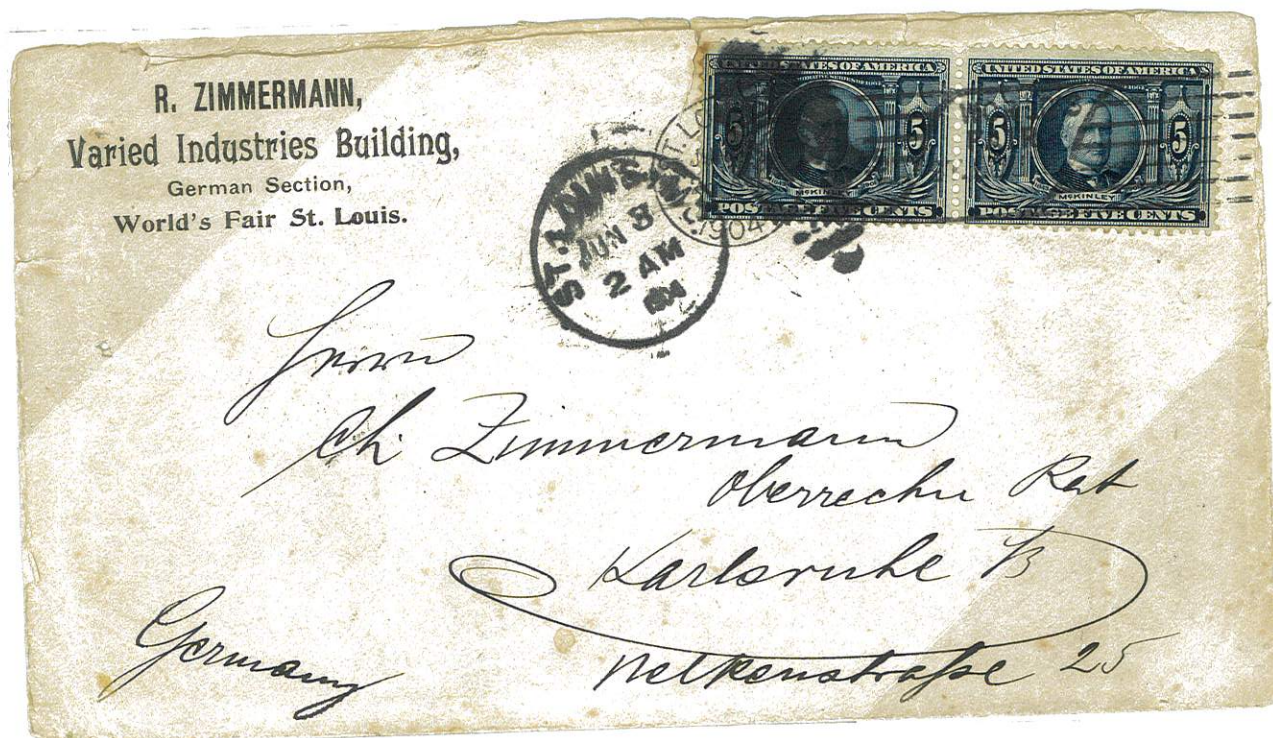 R. ZIMMERMANN,
Varied Industries Building,
German Section,
World's Fair St. Louis.
UNITED STATES OF AMERICA
5 5
McKINLEY
POSTAGE FIVE CENTS
UNITED STATES OF AMERICA
5 5
McKINLEY
POSTAGE FIVE CENTS
ST. LOUIS, MO.
1904
ST. LOUIS, MO.
JUN 3
2 AM
Herrn
Ch. Zimmermann
Oberrechn Rat
Karlsruhe B
Nelkenstraße 25
Germany